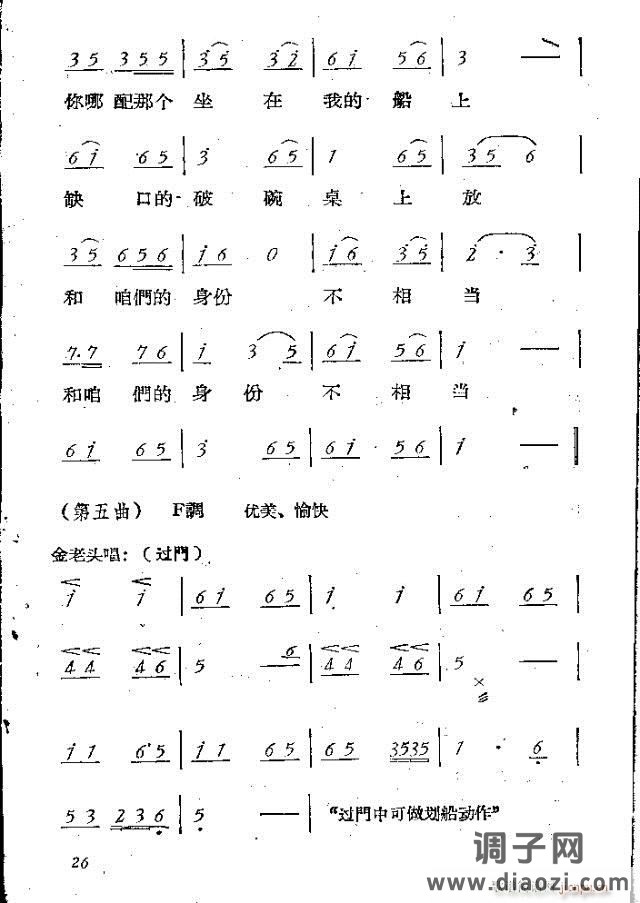 3 5 3 5 5 | 3 5 3 2 | 6 1 5 6 | 3 — |
你哪 配那个 坐 在 我的 船 上
6 1 6 5 | 3 6 5 | 1 6 5 | 3 5 6 |
缺 口的 破 碗 桌 上 放
3 5 6 5 6 | 1 6 0 | 1 6 3 5 | 2 · 3 |
和 咱們的 身份 不 相 当
7·7 7 6 | 1 3 5 | 6 1 5 6 | 1 — |
和咱 們的 身 份 不 相 当
6 1 6 5 | 3 6 5 | 6 1 5 6 | 1 — ‖
(第五曲) F調 优美、愉快
金老头唱:(过門)
1 1 | 6 1 6 5 | 1 1 | 6 1 6 5 |
4 4 4 6 | 5 — 6 | 4 4 4 6 | 5 — |
1 1 6·5 | 1 1 6 5 | 6 5 3535 | 1 · 6 |
5 3 2 3 6 | 5 — | “过門中可做划船动作”
26
调子网
www.diaozi.com